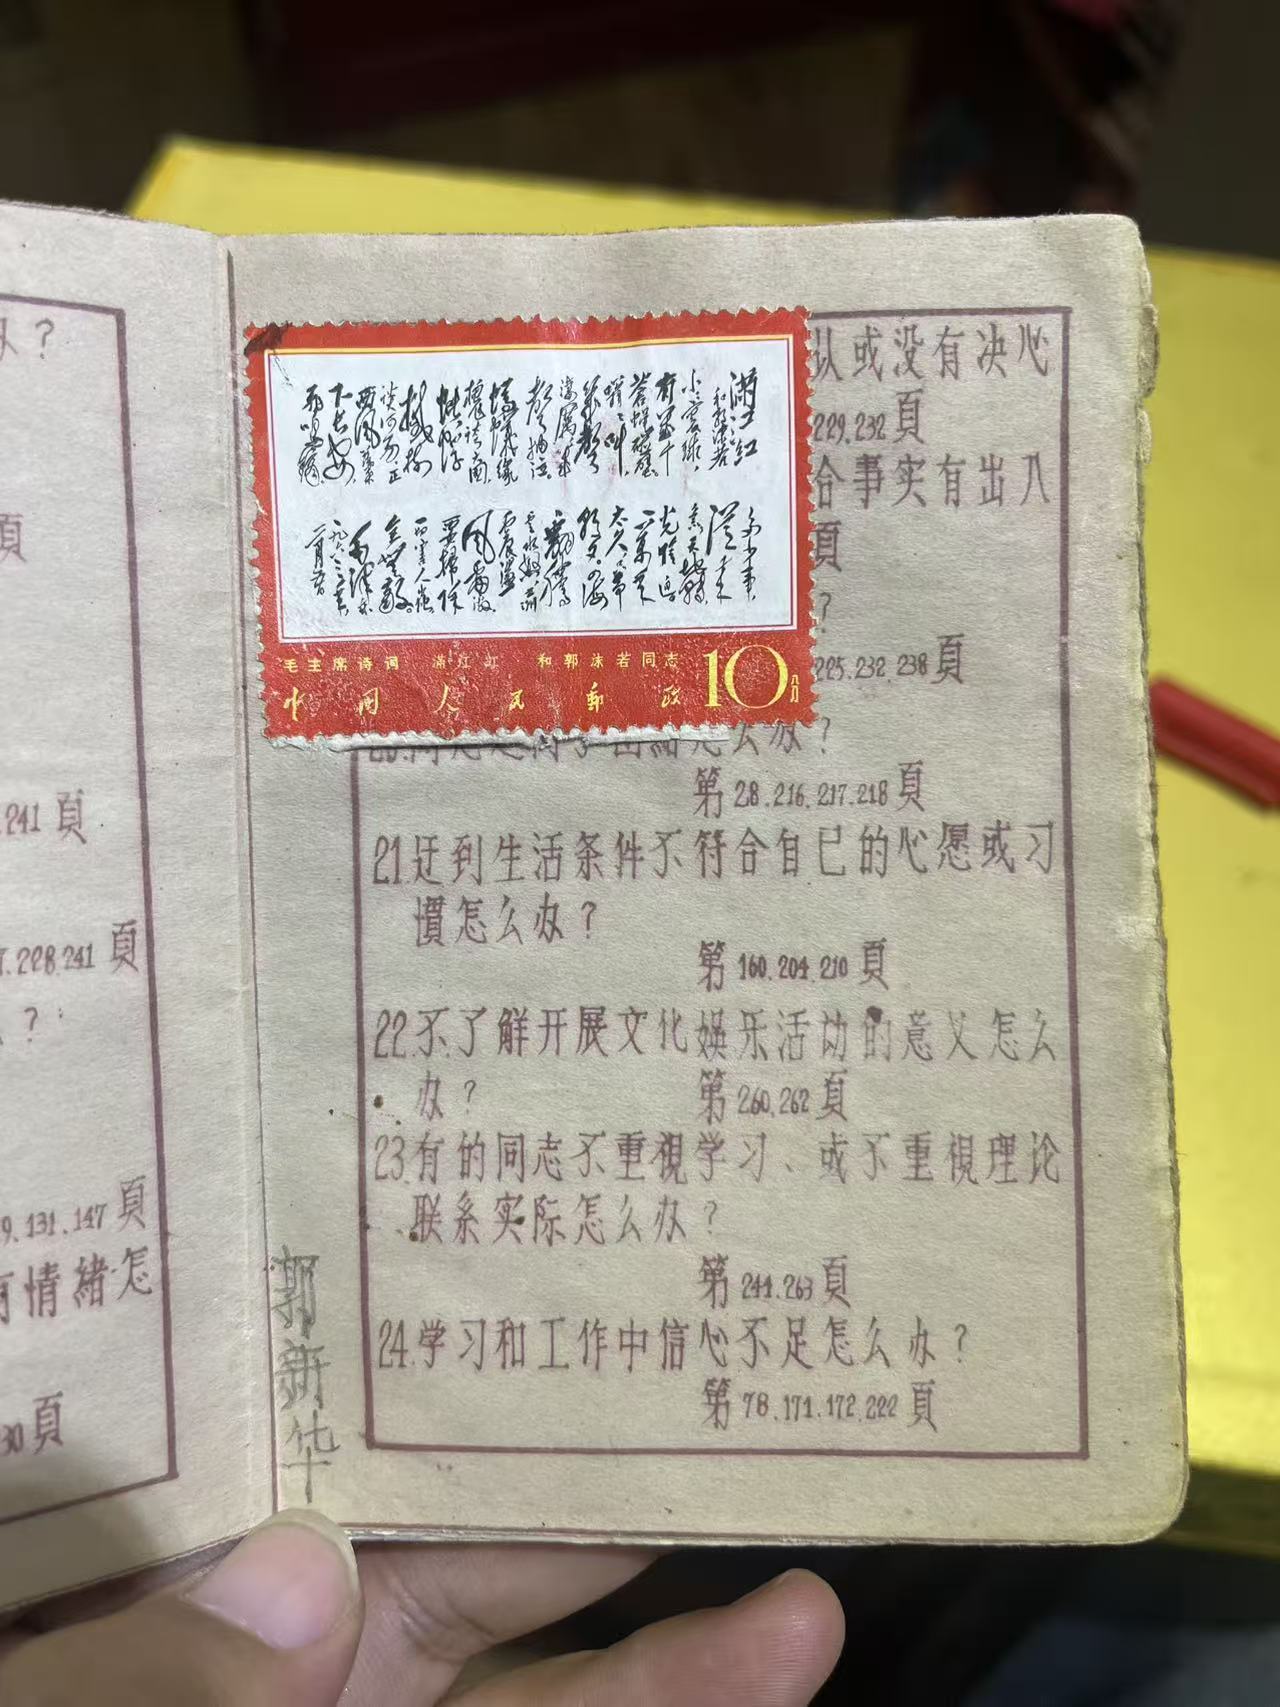 从？
頁
.241 頁
.228.241 頁
？
9.131.147 頁
有情緒怎
30 頁
满江红
和郭沫若
小小寰球，
有几个
苍蝇碰壁。
嗡嗡叫，
几声
凄厉，几
声抽泣。
蚂蚁缘
槐夸大国，
蚍蜉
撼树
谈何易。正
西风落叶
下长安，
飞鸣镝。
多少事，
从来急；
天地转，
光阴迫。
一万年
太久，只争
朝夕。四海
翻腾
云水怒，五洲
震荡
风雷激。
要扫除
一切害人虫，
全无敌。
毛泽东
一九六三年
毛主席诗词 满江红 和郭沫若同志
中国人民邮政 10分
从或没有决心
229.232 頁
合事实有出入
頁
？
225.232.238 頁
么办？
第 28.216.217.218 頁
21.迂到生活条件不符合自己的心愿或习
慣怎么办？
第 160.204.210 頁
22.不了解开展文化娱乐活动的意义怎么
办？ 第 260.262 頁
23.有的同志不重視学习、或不重視理论
联系实际怎么办？
第 244.263 頁
24.学习和工作中信心不足怎么办？
第 78.171.172.222 頁
郭新华